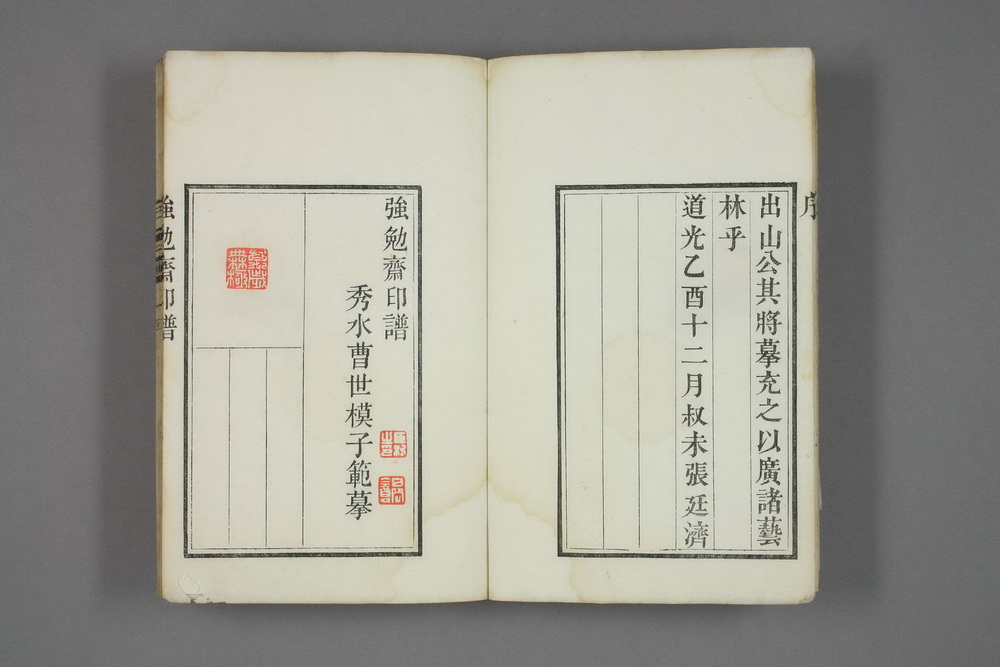 序
出山公其將摹充之以廣諸藝
林乎
道光乙酉十二月叔未張廷濟
強勉齋印譜
秀水曹世模子範摹
強勉齋印譜